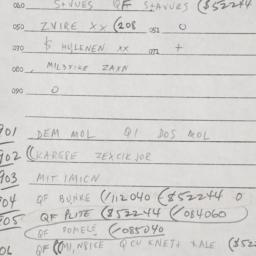 060 STAVUES QF STAVURS ($52244
050 ZVIRE XX (208 051 0
070 $ HYLENEN XX 072 +
080 MILSTIKE ZAXN
090 0
901 DEM MOL QI DOS MOL
902 ((KARESE ZEXCIKJOR
903 MIT IMICN
904 QF BUNKE (/112040 ($52244 0
905 QF PLITE ($52244 (/084060)
QF POMELS (/085040
06 QF ((MI,NSICE QCU KNET+ XALE ($52